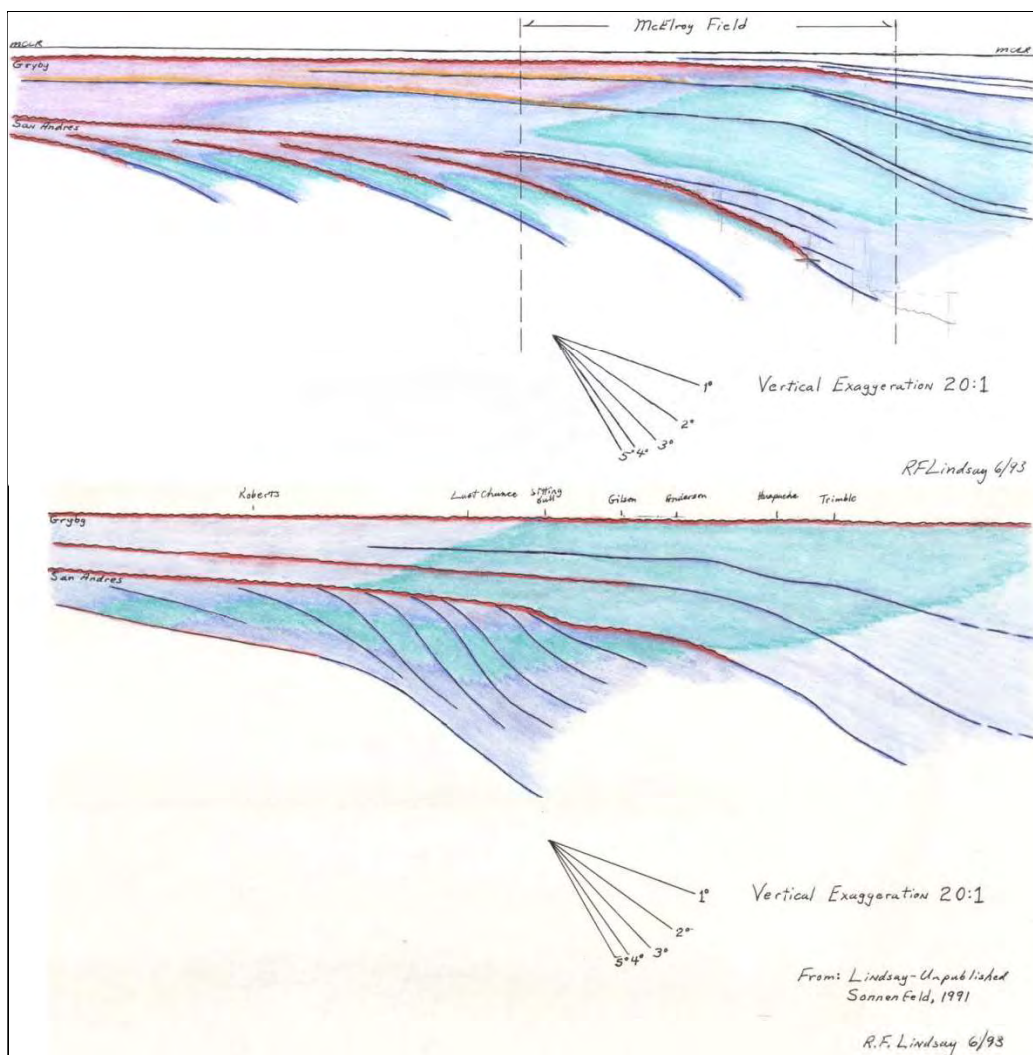 McElroy Field
MCLR
MCLR
Gryby
San Andres
1°
2°
3°
5° 4°
Vertical Exaggeration 20:1
RFLindsay 6/93
Roberts
Last Chance
Sitting
Bull
Gilson
Anderson
Trimble
Gryby
San Andres
1°
2°
3°
5° 4°
Vertical Exaggeration 20:1
From: Lindsay-Unpublished
Sonnenfeld, 1991
R.F. Lindsay 6/93